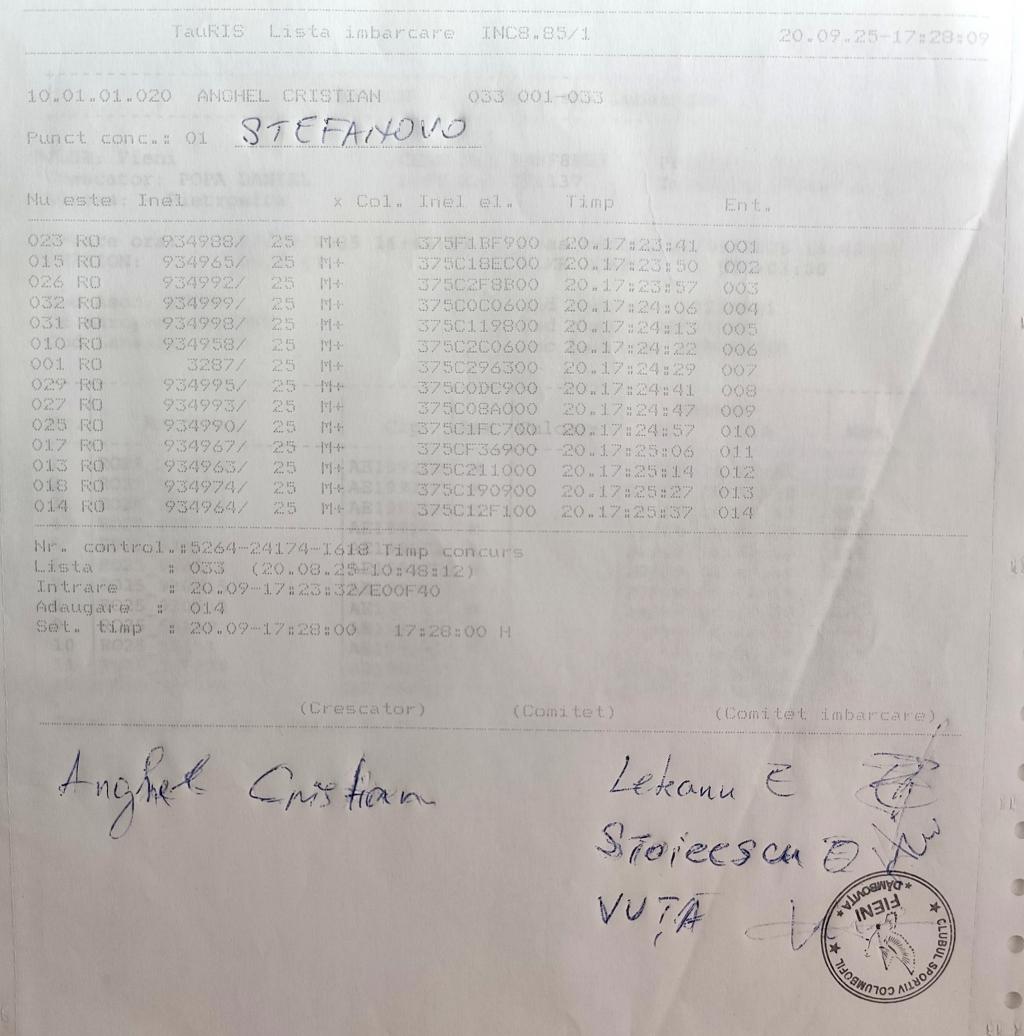 TauRIS Lista imbarcare INC8.85/1 20.09.25-17:28:09
10.01.01.020 ANGHEL CRISTIAN 033 001-033
Punct conc.: 01 STEFANOVO
Nu este Inel x Col. Inel el. Timp Ent.
023 RO 934988/ 25 M+ 375F1BF900 20.17:23:41 001
015 RO 934965/ 25 M+ 375C18EC00 20.17:23:50 002
026 RO 934992/ 25 M+ 375C2F8B00 20.17:23:57 003
032 RO 934999/ 25 M+ 375C0C0600 20.17:24:06 004
031 RO 934998/ 25 M+ 375C119800 20.17:24:13 005
010 RO 934958/ 25 M+ 375C2C0600 20.17:24:22 006
001 RO 3287/ 25 M+ 375C296300 20.17:24:29 007
029 RO 934995/ 25 M+ 375C0DC900 20.17:24:41 008
027 RO 934993/ 25 M+ 375C08A000 20.17:24:47 009
025 RO 934990/ 25 M+ 375C1FC700 20.17:24:57 010
017 RO 934967/ 25 M+ 375CF36900 20.17:25:06 011
013 RO 934963/ 25 M+ 375C211000 20.17:25:14 012
018 RO 934974/ 25 M+ 375C190900 20.17:25:27 013
014 RO 934964/ 25 M+ 375C12F100 20.17:25:37 014
Nr. control.:5264-24174-I618 Timp concurs
Lista : 033 (20.08.25-10:48:12)
Intrare : 20.09-17:23:32/E00F40
Adaugare : 014
Set. timp : 20.09-17:28:00 17:28:00 H
(Crescator) (Comitet) (Comitet imbarcare)
Anghel Cristian
Leteanu E
Stoicescu
VUȚĂ
CLUBUL SPORTIV COLUMBOFIL
FIENI
DÂMBOVIȚA